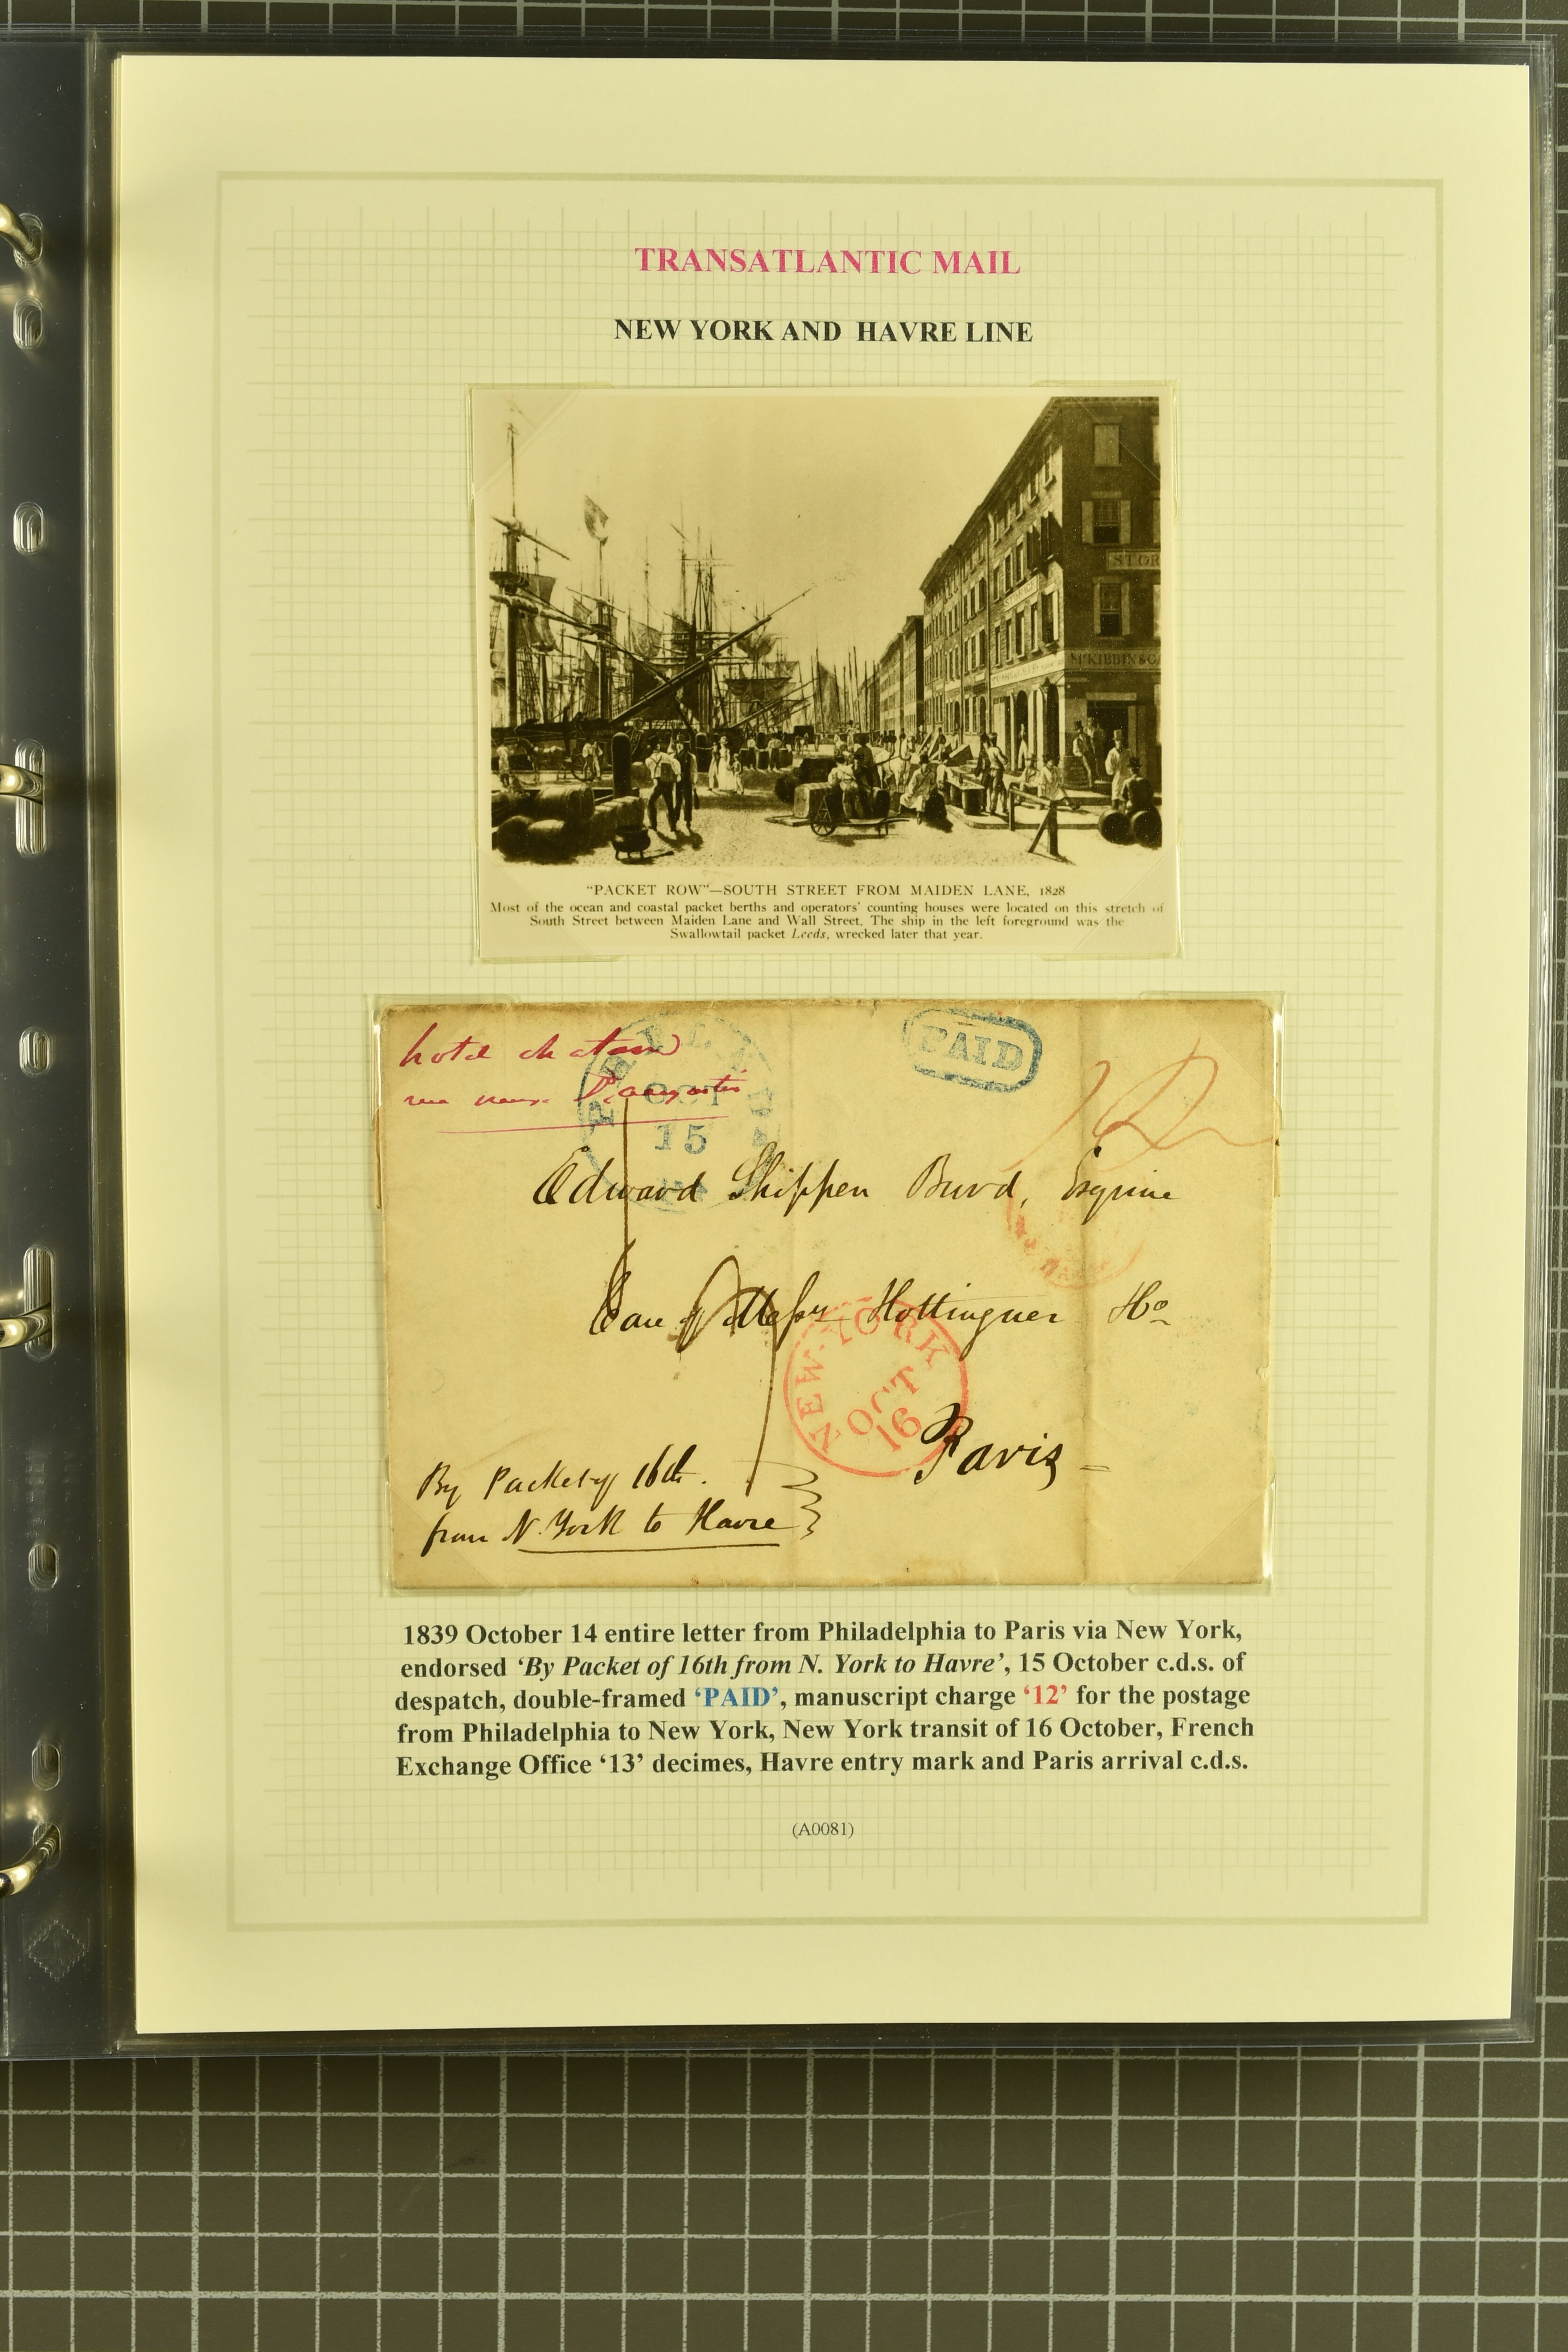 TRANSATLANTIC MAIL
NEW YORK AND HAVRE LINE
STOR
McKIBBIN & C
"PACKET ROW"—SOUTH STREET FROM MAIDEN LANE, 1828
Most of the ocean and coastal packet berths and operators' counting houses were located on this stretch of
South Street between Maiden Lane and Wall Street. The ship in the left foreground was the
Swallowtail packet Leeds, wrecked later that year.
hotel chatam
rue
PAID
OCT
15
12
Edward Shippen Burd, Esquire
Care of Messrs Hottinguer & Co
NEW-YORK
OCT
16
Paris
By Packet of 16th.
from N. York to Havre
1839 October 14 entire letter from Philadelphia to Paris via New York,
endorsed 'By Packet of 16th from N. York to Havre', 15 October c.d.s. of
despatch, double-framed 'PAID', manuscript charge '12' for the postage
from Philadelphia to New York, New York transit of 16 October, French
Exchange Office '13' decimes, Havre entry mark and Paris arrival c.d.s.
(A0081)